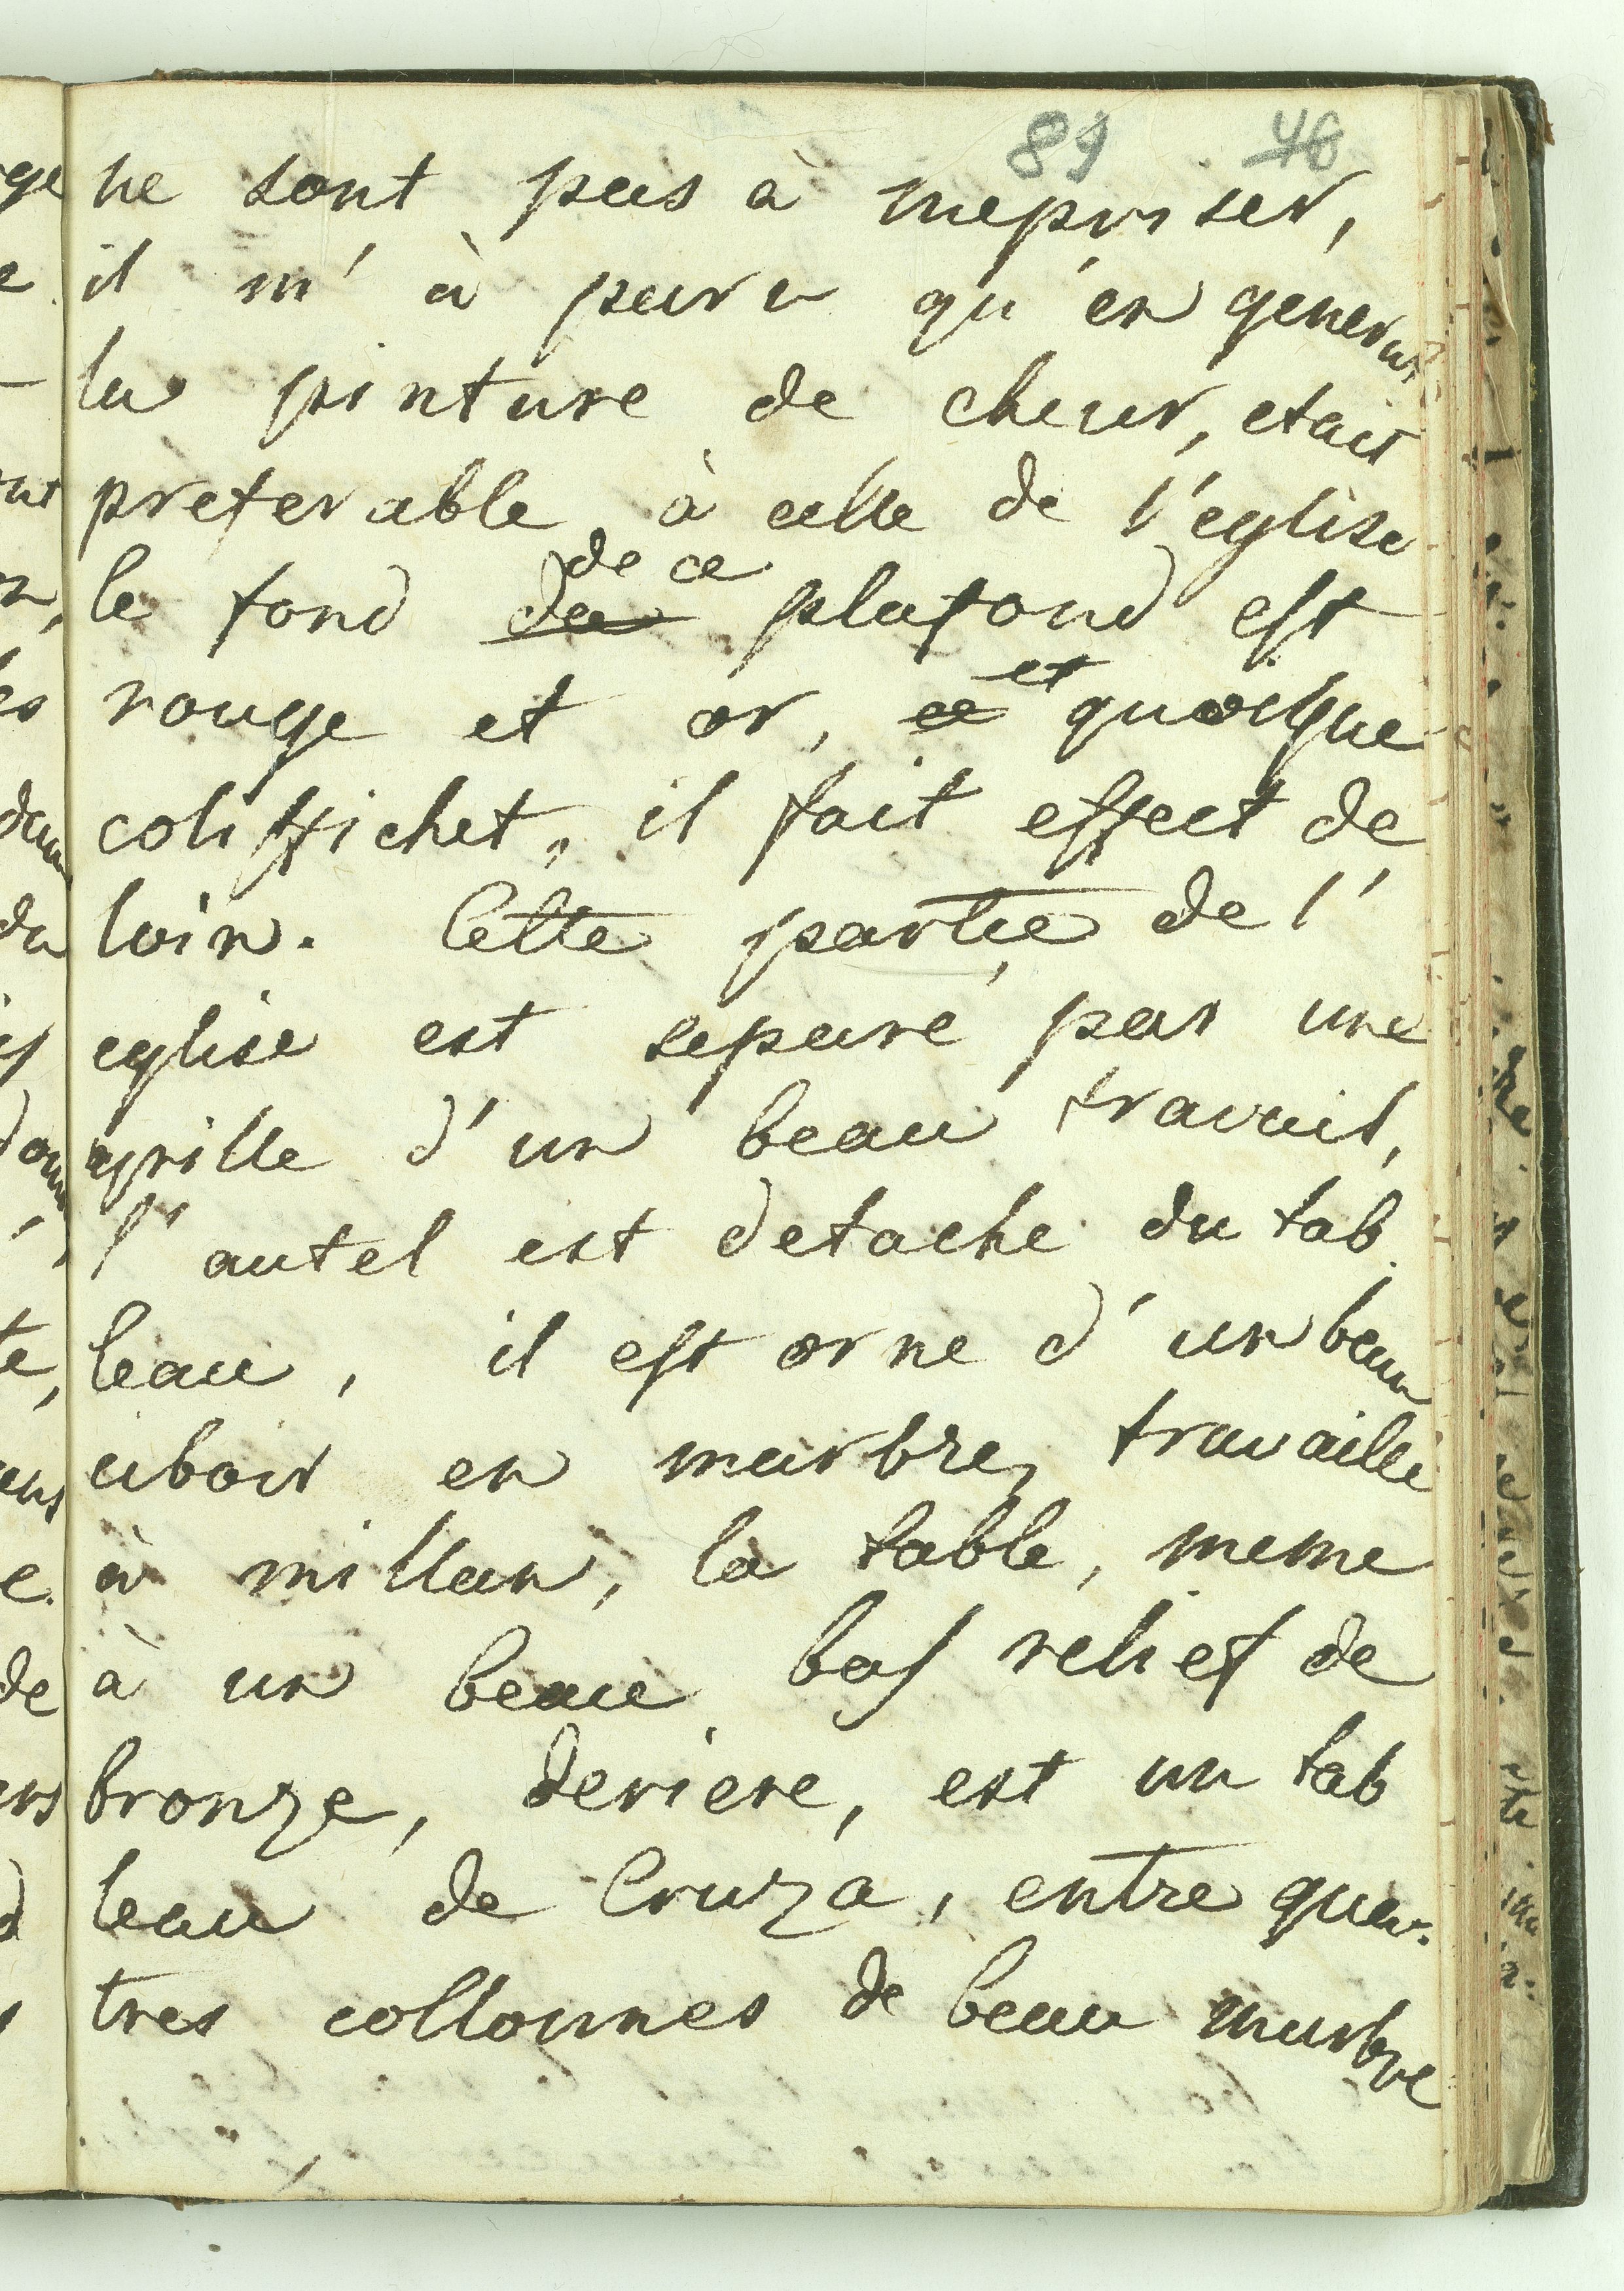 89 46
ne sont pas à mepriser,
il m'à paru qu'en general
la pinture de cheur, etait
preferable, à celle de l'eglise
le fond du de ce plafond est
rouge et or, ce et quoique
coliffichet, il fait effect de
loin. Cette partie de l'
eglise est separé par une
grille d'un beau travail,
l'autel est detache du tab
leau, il est orne d'un beau
ciboir en marbre, travaille
à millan, la table, meme
à un beau bas relief de
bronze, deriere, est un tab
leau de Cruza, entre qua-
tres collonnes de beau marbre